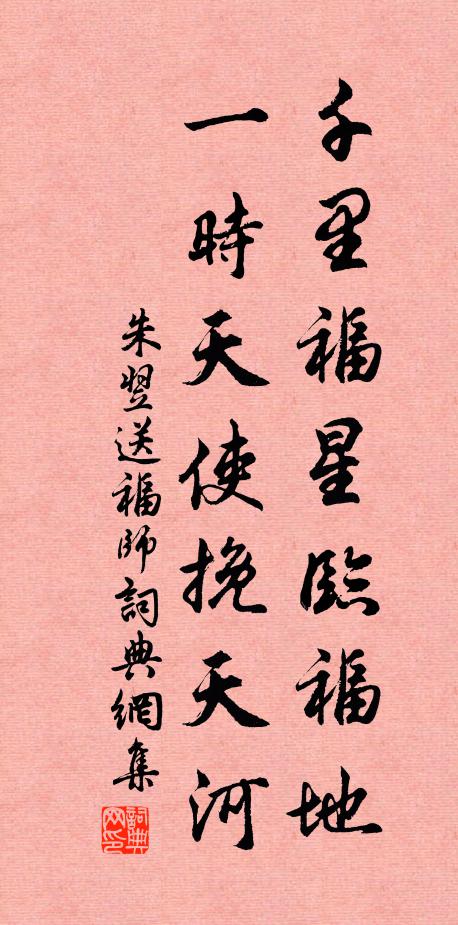 千里福星臨福地
一時天使挽天河
朱翌送福師詞典網集
詞典网印